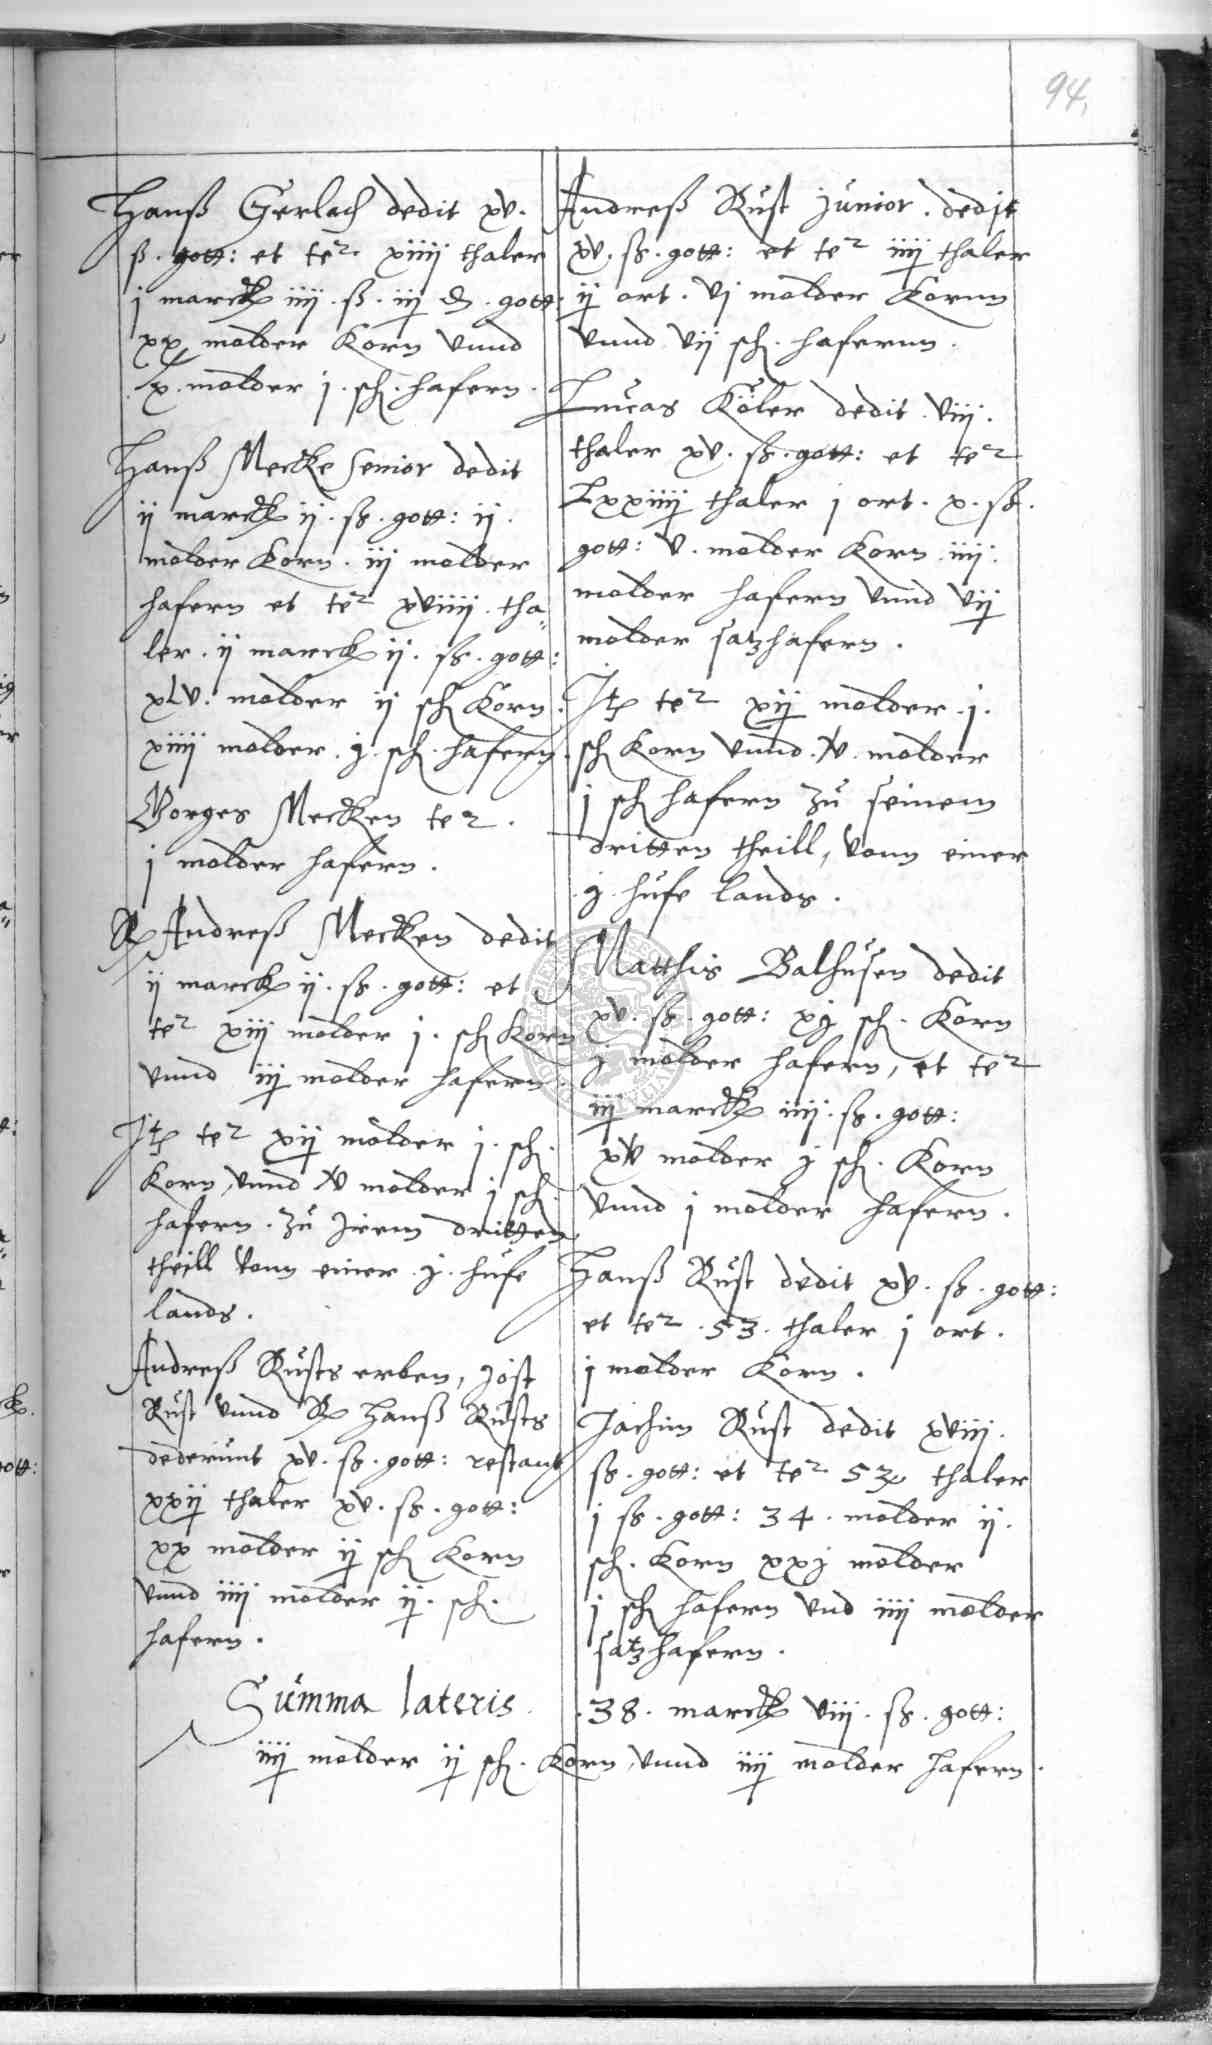 94.
Hanß Gerlach dedit xv.
ß. gott: et ter xiiij thaler
j marck iiij. ß. iij ₰. gott:
xx molder Korn vnnd
x. molder j. sch. hafern.
Hanß Mecke senior dedit
ij marck ij. ß. gott: ij.
molder Korn. iij molder
hafern et ter xviiij. tha=
ler. ij marck ij. ß. gott:
xLv. molder ij sch Korn.
xiiij molder. j. sch. hafern.
Borges Mecken ter.
j molder hafern.
R Andreß Mecken dedit
ij marck ij. ß. gott: et
ter xiij molder j. sch Korn
vnnd iij molder hafern.
Itz ter xij molder j. sch.
Korn, vnnd molder j sch.
hafern. zu jrem dritten
theill vonn einer j. hufe
lands.
Andreß Rusts erben, jost
Rust vnnd R Hanß Rusts
dederunt xv. ß. gott: restant
xxij thaler xv. ß. gott:
xx molder ij sch Korn
vnnd iiij molder ij. sch.
hafern.
Andreß Rust junior. dedit
xv. ß. gott: et ter iiij thaler
ij ort. vj molder Kornn
vnnd vij sch. hafernn.
Lucas Köler dedit viij.
thaler xv. ß. gott: et ter
Lxxiiij thaler j ort. x. ß.
gott: v. molder Korn iiij.
molder hafern vnnd vij
molder satzhafern.
Itz ter xij molder. j.
sch Korn vnnd. molder
j sch hafern zu seinem
dritten theill, vonn einer
j. hufe lands.
Matthis Balhusen dedit
xv. ß. gott: xj sch. Korn
j molder hafern, et ter
iij marck iiij. ß. gott:
molder j sch. Korn
vnnd j molder hafern.
Hanß Rust dedit xv. ß. gott:
et ter. 53. thaler j ort.
j molder Korn.
Jachim Rust dedit xviij.
ß. gott: et ter 53 thaler
j ß. gott: 34. molder ij.
sch. Korn xxj molder
j sch hafern vnd iiij molder
satzhafern.
Summa lateris. 38. marck viij. ß. gott:
iiij molder ij sch. Korn, vnnd iiij molder hafern.